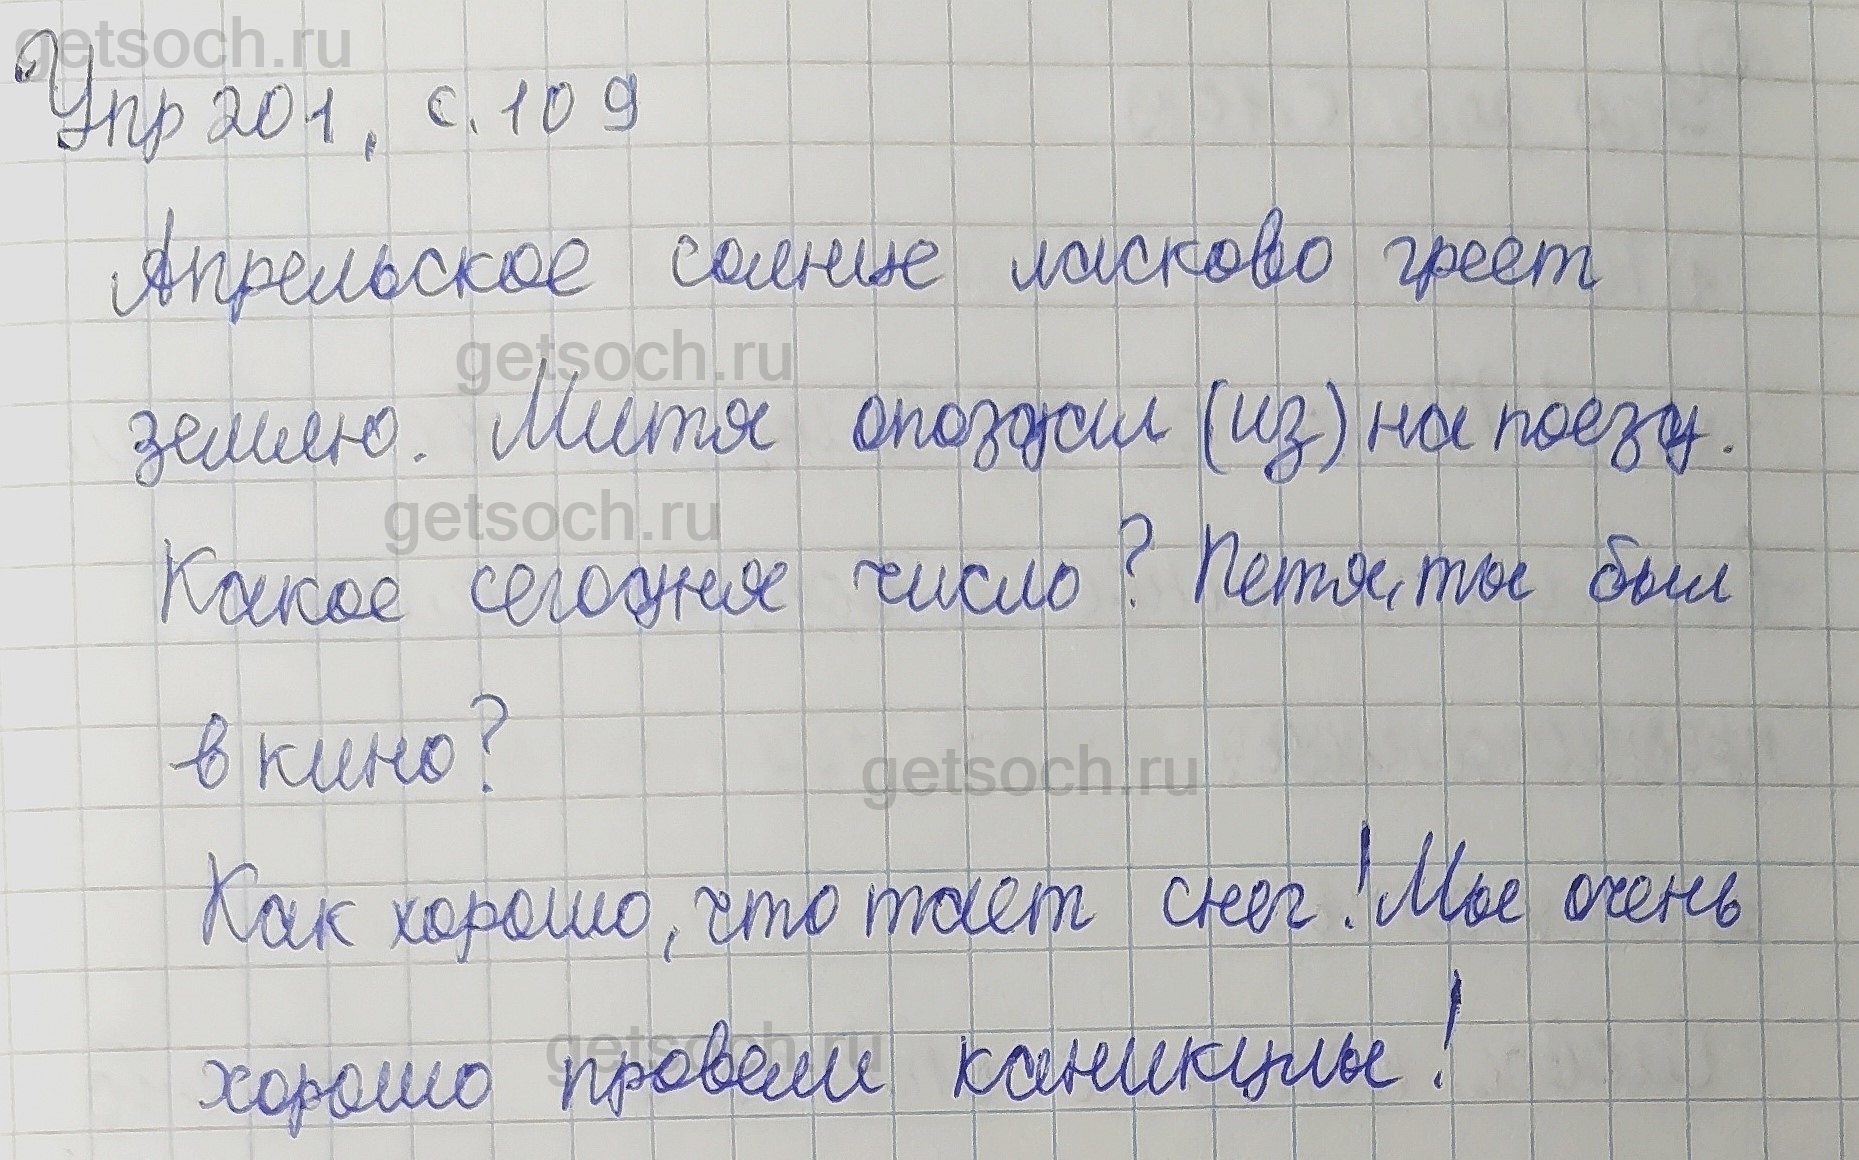 getsoch.ru
Упр 201, с. 109
Апрельское солнце ласково греет
getsoch.ru
землю. Митя опоздал (из) на поезд.
getsoch.ru
Какое сегодня число? Петя, ты был
в кино?
getsoch.ru
Как хорошо, что тает снег! Мы очень
getsoch.ru
хорошо провели каникулы!